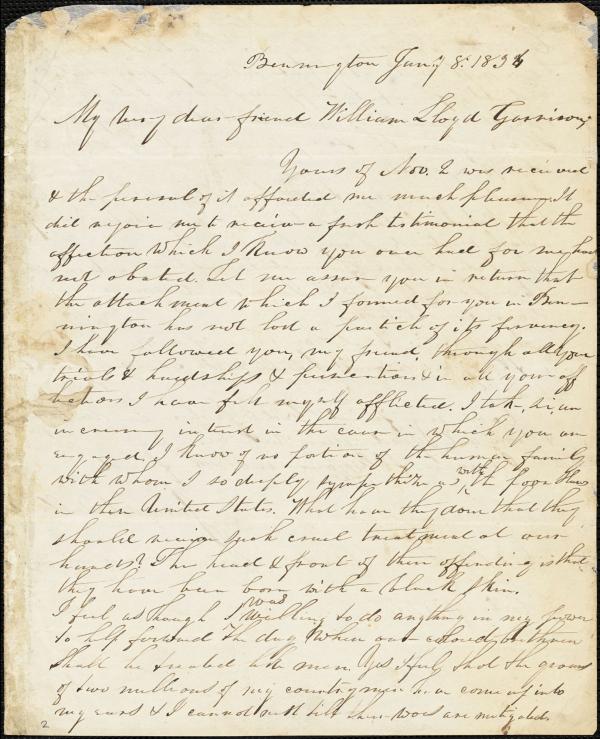 Bennington Jany 8. 1834
My very dear friend William Lloyd Garrison,
Yours of Nov. 2 was received
& the perusal of it afforded me much pleasure. It
did rejoice me to receive a fresh testimonial that the
affection which I know you once had for me has
not abated. Let me assure you in return that
the attachment which I formed for you in Ben-
nington has not lost a particle of its fervency.
I have followed you, my friend, through all your
trials & hardships & persecutions & in all your aff
lictions I have felt myself afflicted. I take, sir, an
increasing interest in the cause in which you are
engaged. I know of no portion of the human family
with whom I so deeply sympathize as with the poor slaves
in these United States. What have they done that they
should receive such cruel treatment at our
hands? The head & front of their offending is that
they have been born with a black skin.
I feel as though I was willing to do anything in my power
to help forward the day when our colored brethren
shall be treated like men. Yes I feel that the groans
of two millions of my countrymen have come up into
my ears & I cannot rest till their woes are mitigated.
2